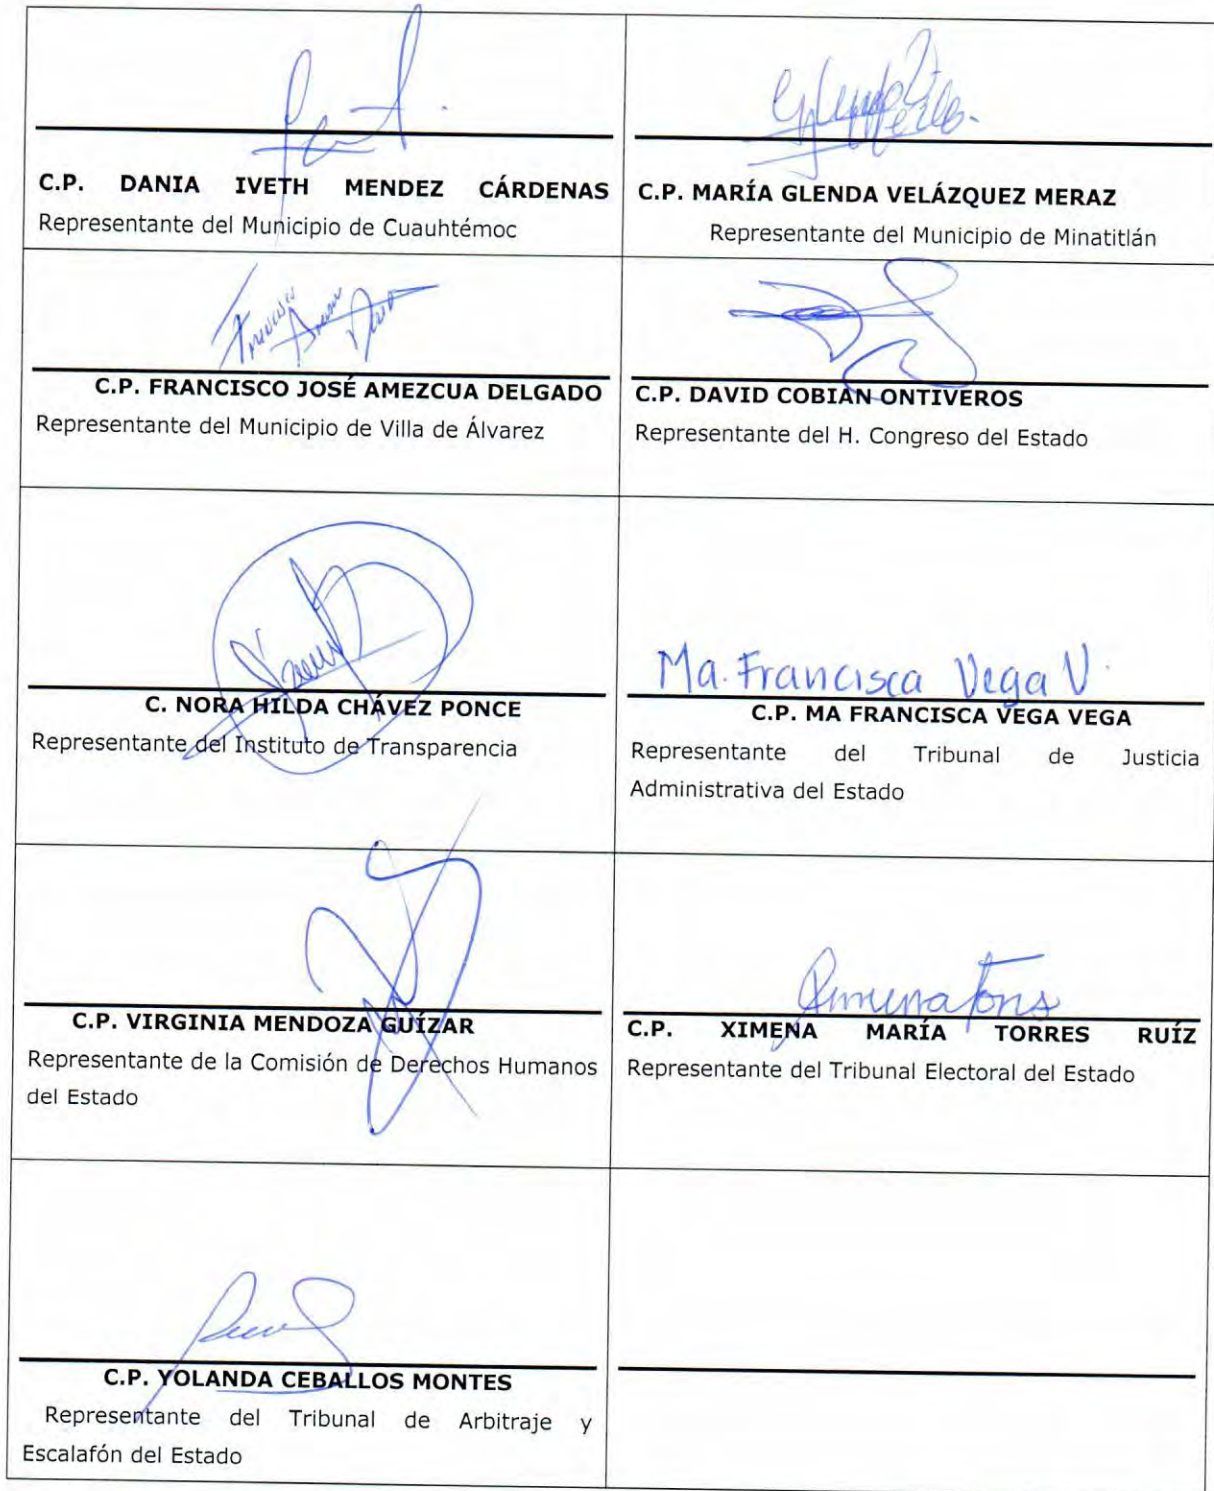 C.P. DANIA IVETH MENDEZ CÁRDENAS
Representante del Municipio de Cuauhtémoc
C.P. MARÍA GLENDA VELÁZQUEZ MERAZ
Representante del Municipio de Minatitlán
C.P. FRANCISCO JOSÉ AMEZCUA DELGADO
Representante del Municipio de Villa de Álvarez
C.P. DAVID COBIÁN ONTIVEROS
Representante del H. Congreso del Estado
C. NORA HILDA CHÁVEZ PONCE
Representante del Instituto de Transparencia
Ma. Francisca Vega V.
C.P. MA FRANCISCA VEGA VEGA
Representante del Tribunal de Justicia
Administrativa del Estado
C.P. VIRGINIA MENDOZA GUÍZAR
Representante de la Comisión de Derechos Humanos
del Estado
C.P. XIMENA MARÍA TORRES RUÍZ
Representante del Tribunal Electoral del Estado
C.P. YOLANDA CEBALLOS MONTES
Representante del Tribunal de Arbitraje y
Escalafón del Estado